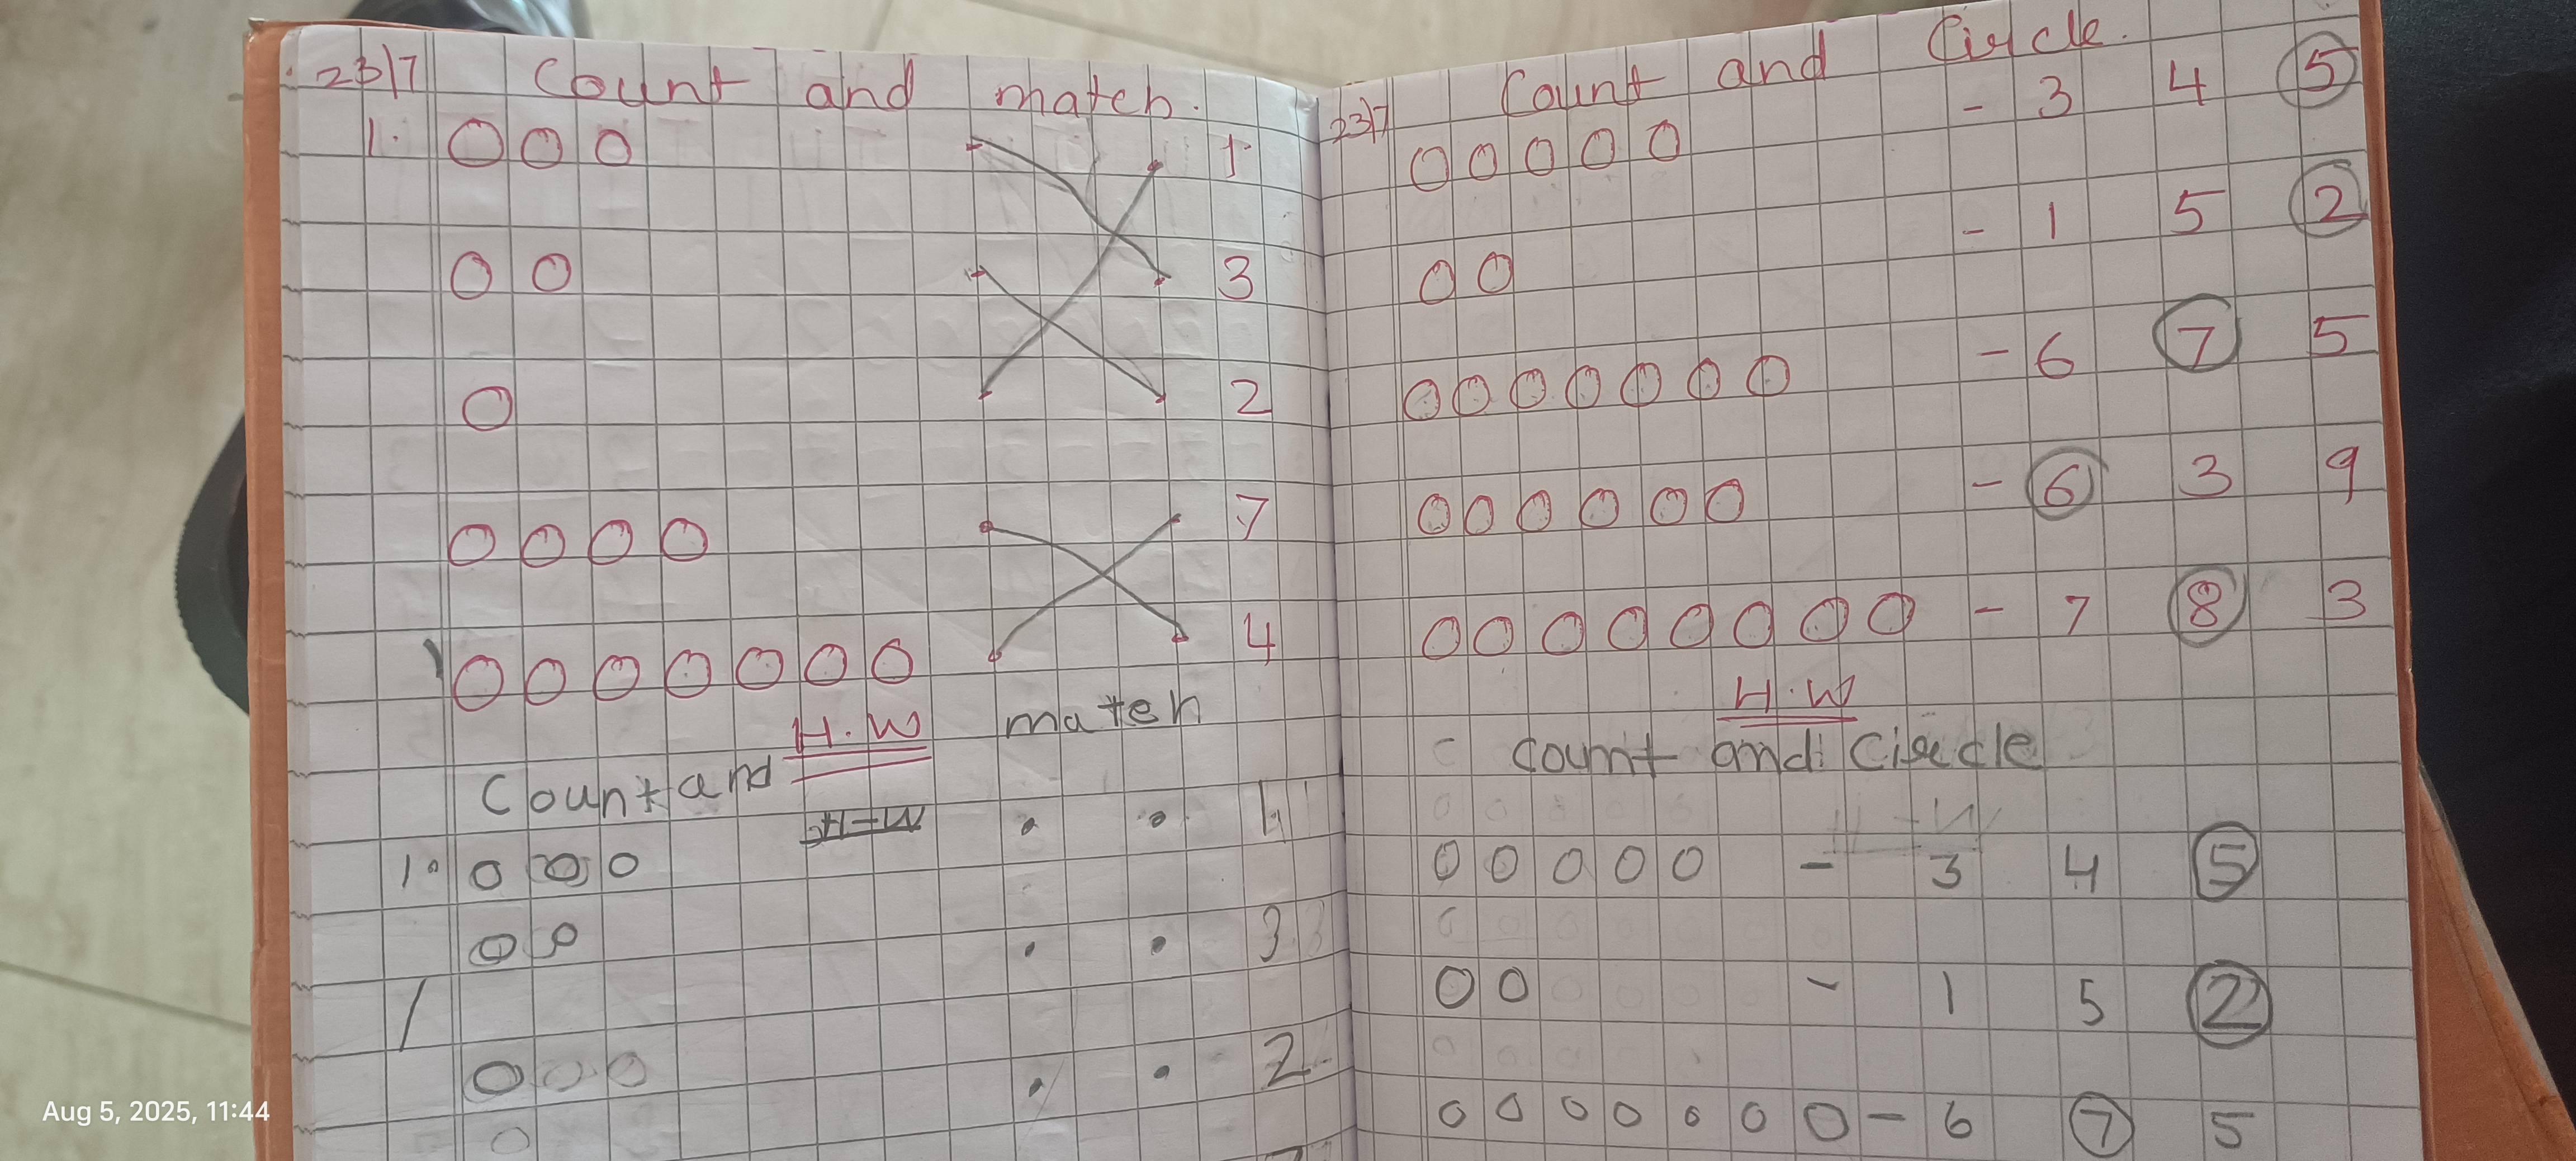 23/7 Count and match.
1. O O O 1
O O 3
O 2
O O O O 7
O O O O O O O 4
H.W
Count and match
H-W
1. O O O 1
O O 3
O O O 2
O
23/7 Count and Circle.
O O O O O - 3 4 5
O O - 1 5 2
O O O O O O O - 6 7 5
O O O O O O - 6 3 9
O O O O O O O O - 7 8 3
H.W
Count and Circle
O O O O O - 3 4 5
O O - 1 5 2
O O O O O O O - 6 7 5
Aug 5, 2025, 11:44